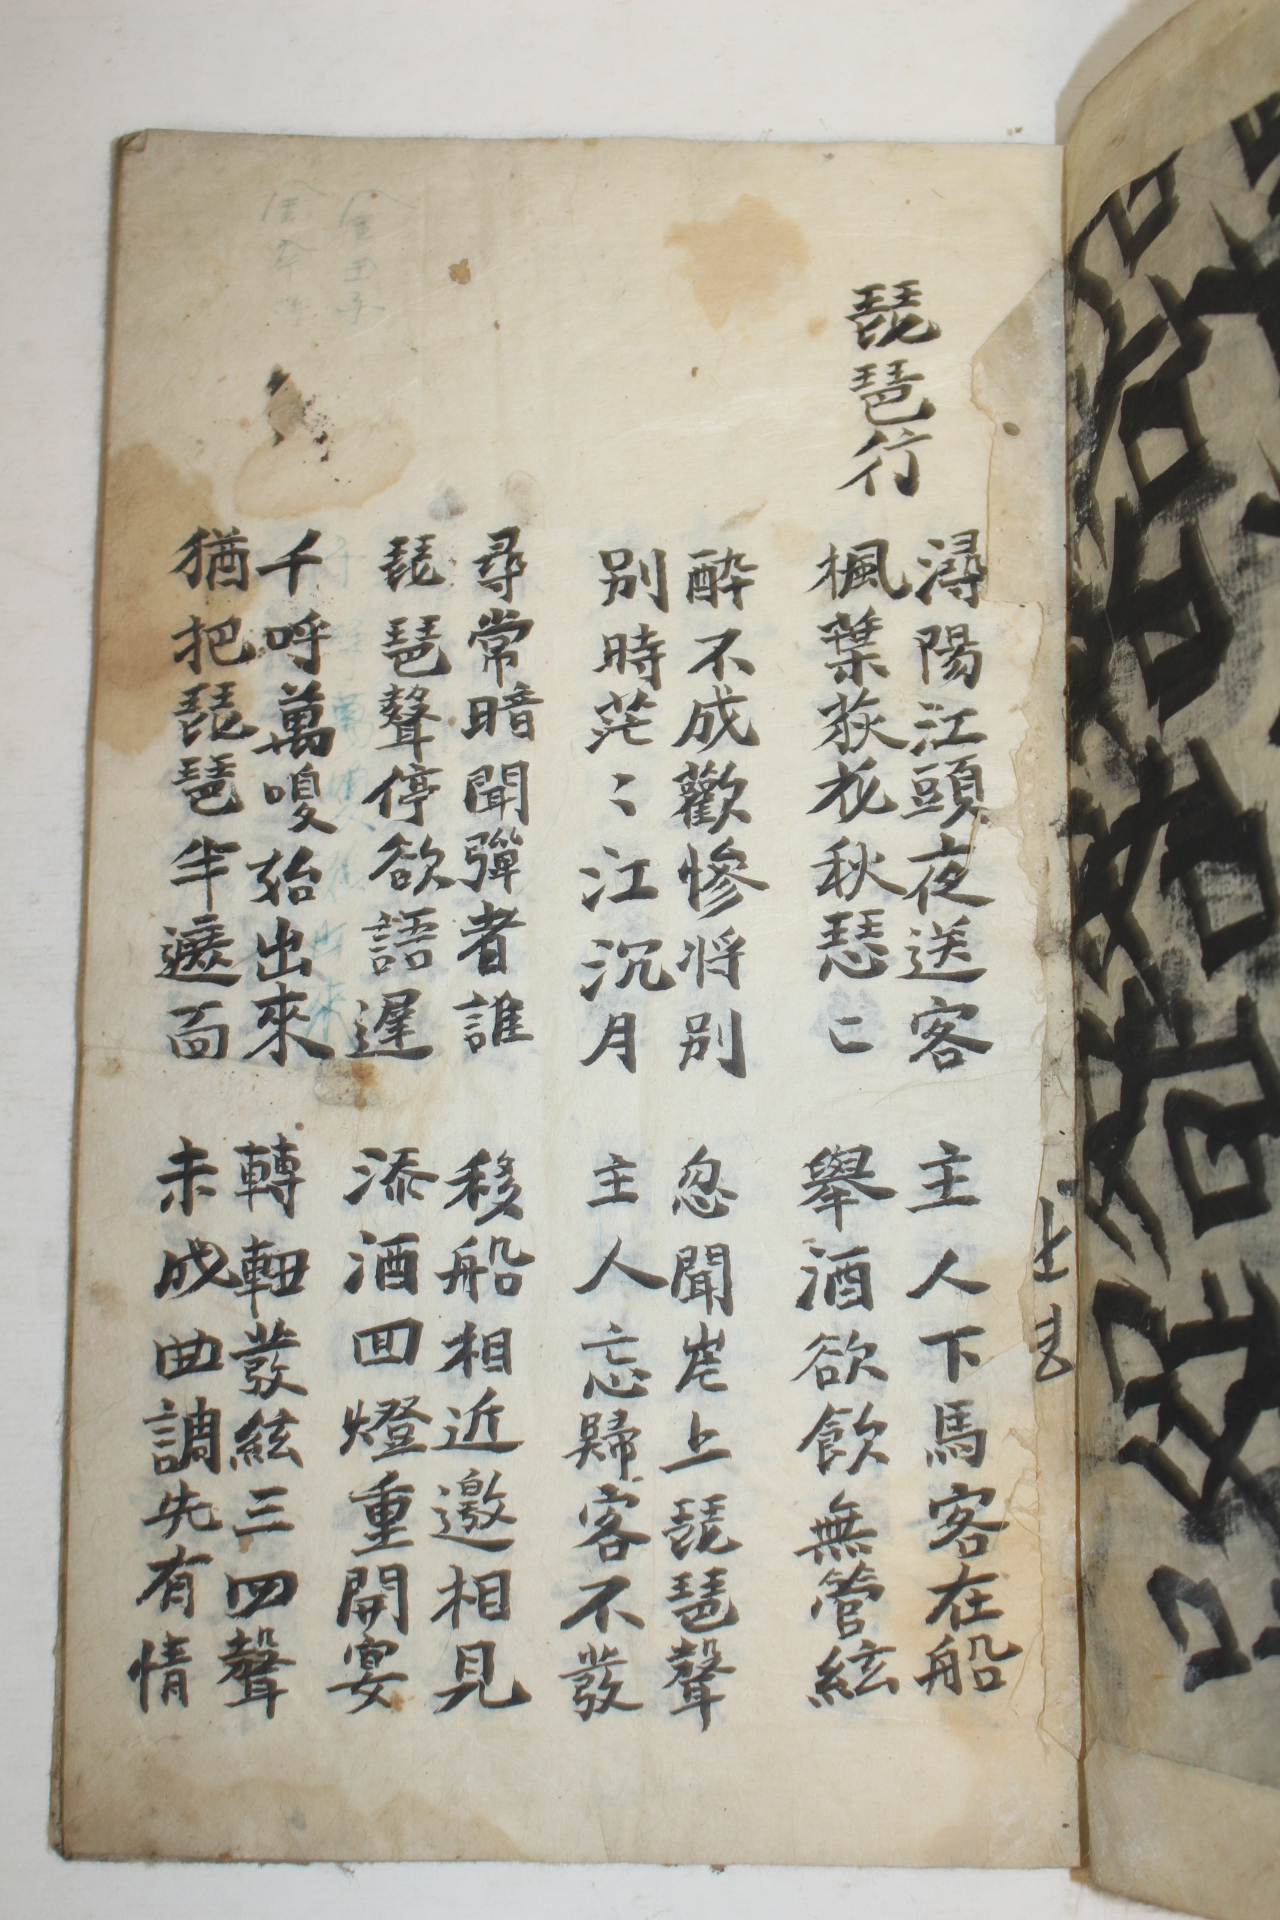 琵琶行
潯陽江頭夜送客
楓葉荻花秋瑟〻
主人下馬客在船
舉酒欲飮無管絃
醉不成歡慘将別
別時茫〻江沉月
忽聞岸上琵琶聲
主人忘歸客不發
尋常暗聞彈者誰
琵琶聲停欲語遲
移船相近邀相見
添酒回燈重開宴
千呼萬喚始出來
猶把琵琶半遮面
轉軸發絃三四聲
未成曲調先有情